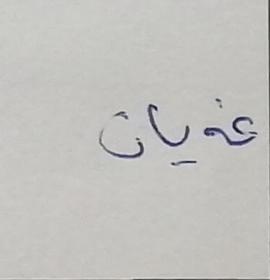 غديان